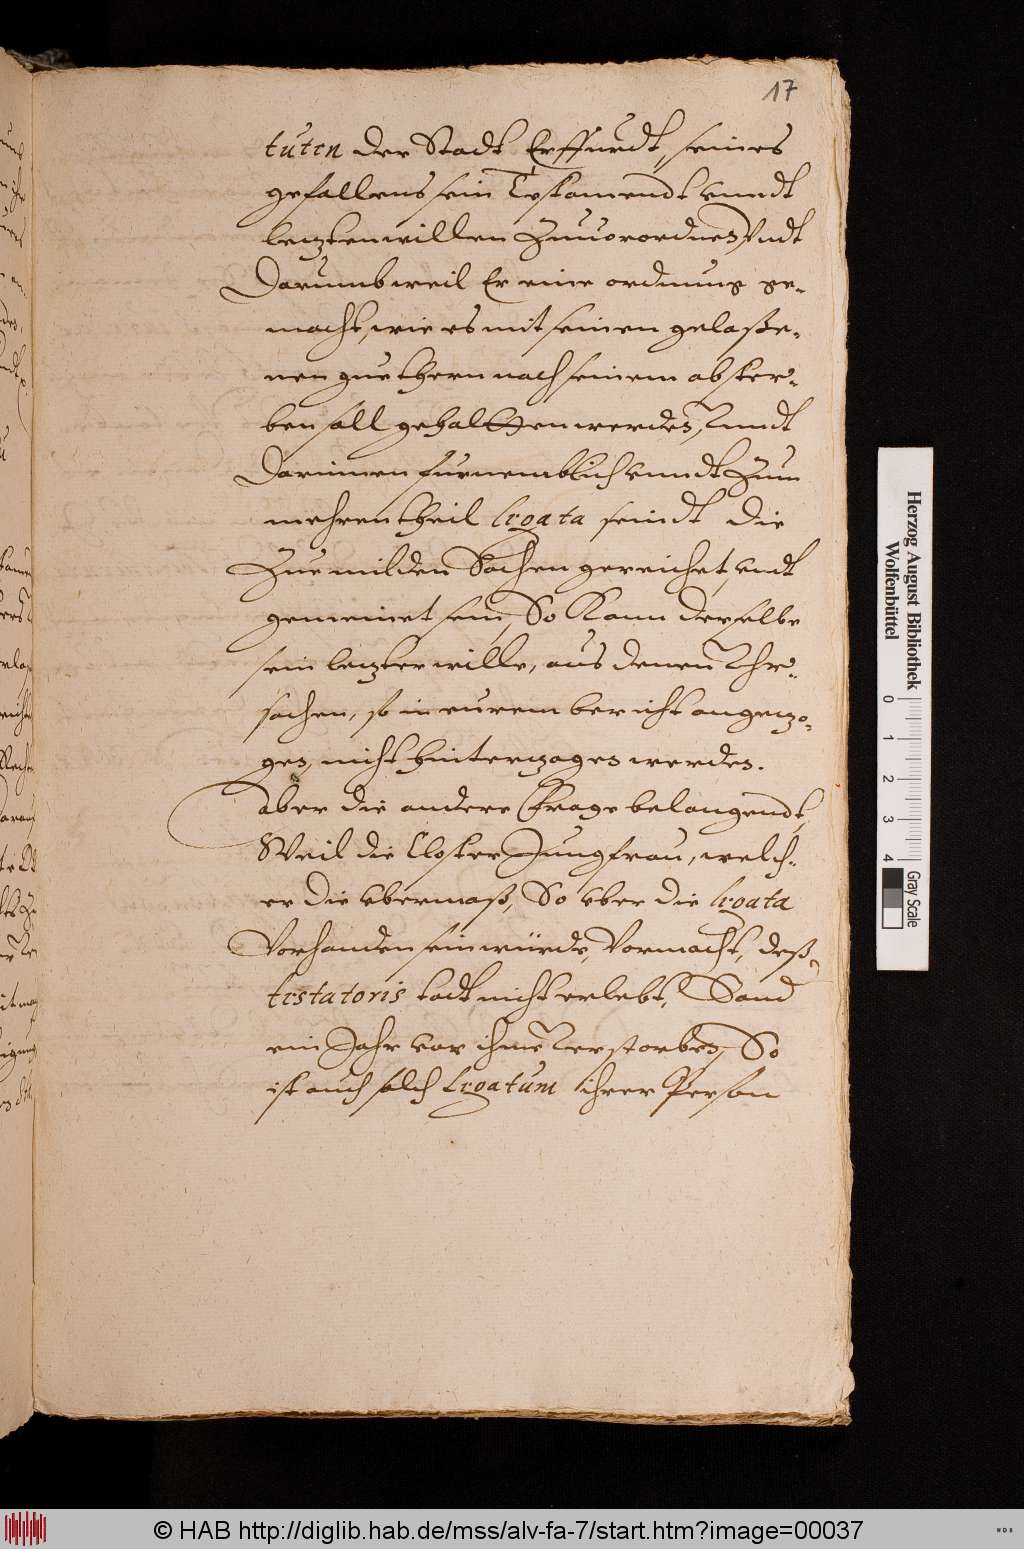 17
tuten der Stadt Erffurdt, seines
gefallens sein Testamendt vnndt
letztenwillen Zuuorordnen, Vndt
Darumb weil Er eine ordnung ge-
macht, wie es mit seinen gelaße-
nen guethern nach seinem abster-
ben soll gehaltten werden, Vnndt
Darinnen furnemblich vnndt Zum
mehrentheil legata seindt die
Zue milden Sachen gereichet, vndt
gemeinet sein, So Kann derselbe
sein letzter wille, aus denen Vhr-
sachen, so in eurem bericht angetzo-
gen, nicht hintertzogen werden.
Aber die andere Frage belangendt,
Weil die Closter Jungfrau, welch-
er die vbermaß, So vber die legata
Vorhanden sein würde, Vormacht, deß
testatoris todt nicht erlebt, Sond
ein Jahr vor ihme Verstorben, So
ist auch solch Legatum ihrer Person
Herzog August Bibliothek
Wolfenbüttel
0 1 2 3 4
Gray Scale
© HAB http://diglib.hab.de/mss/alv-fa-7/start.htm?image=00037